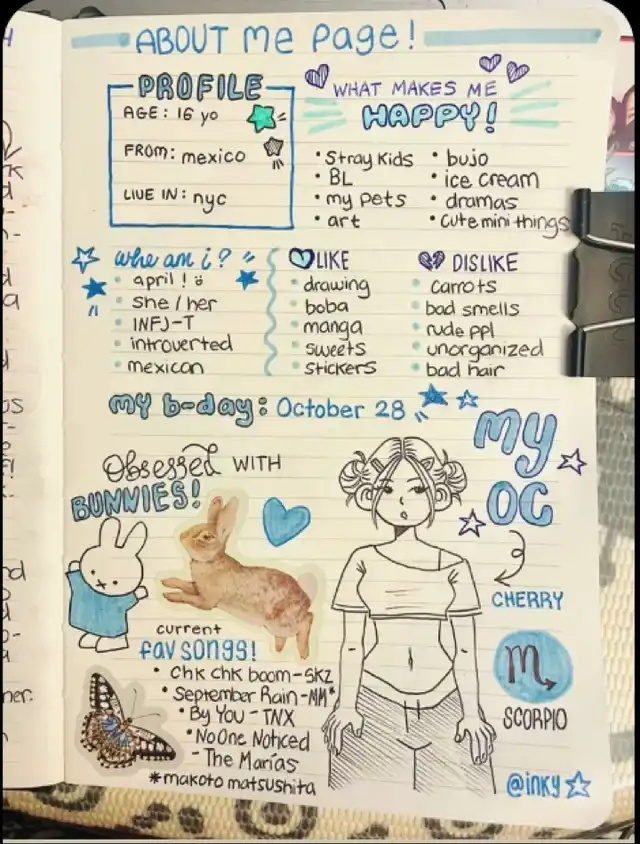 ABOUT Me Page!
PROFILE
AGE: 16 yo
FROM: mexico
LIVE IN: nyc
WHAT MAKES ME
HAPPY!
• Stray Kids
• BL
• my pets
• art
• bujo
• ice cream
• dramas
• cute mini things
who am i?
• april! ü
• she/her
• INFJ-T
• introverted
• mexican
LIKE
• drawing
• boba
• manga
• sweets
• stickers
DISLIKE
• carrots
• bad smells
• rude ppl
• unorganized
• bad hair
my b-day: October 28
Obsessed WITH
BUNNIES!
MY
OC
CHERRY
SCORPIO
current
fav songs!
• Chk chk boom - SKZ
• September Rain - MM*
• By You - TNX
• No One Noticed
- The Marías
*makoto matsushita
@inky